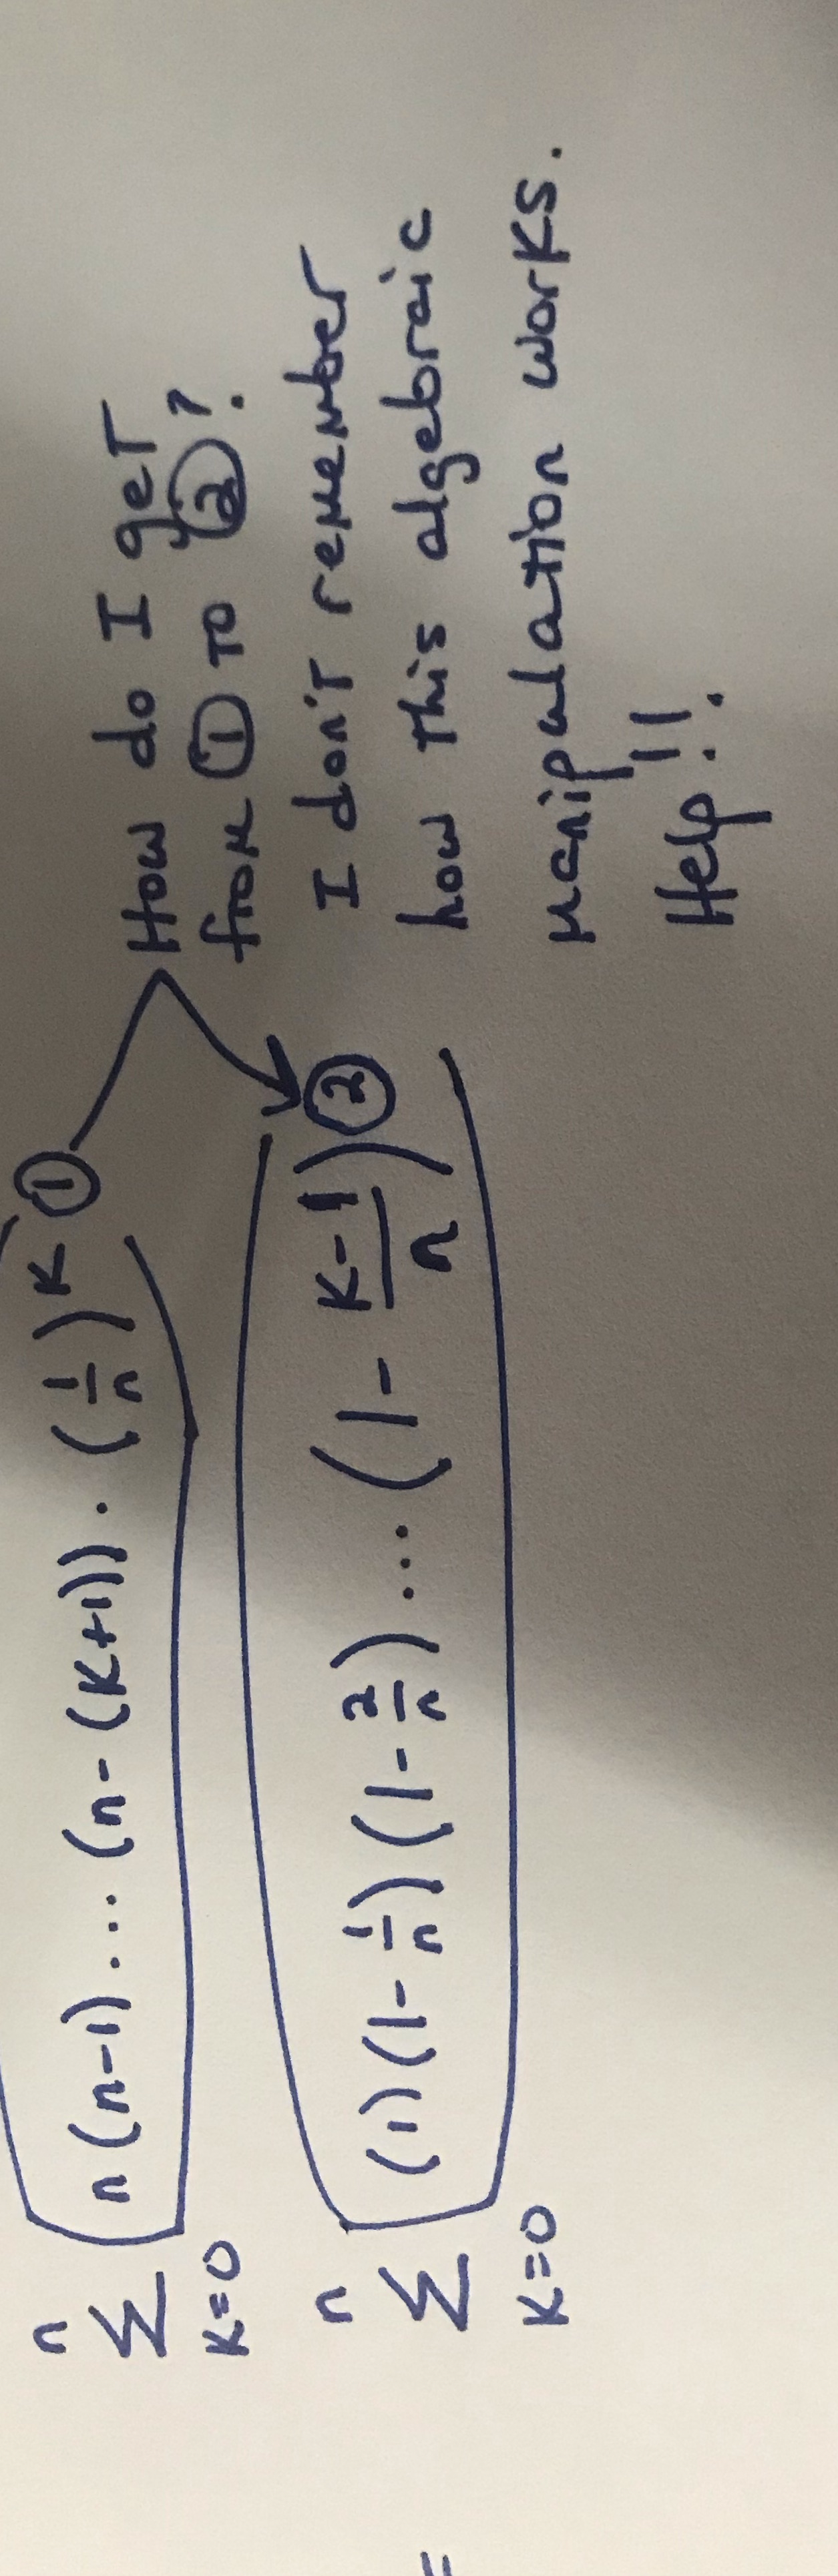 n
Σ n(n-1)....(n-(K+1))) . (1/n)^K ①
K=0
n
Σ (1)(1-1/n)(1-2/n)...(1-(K-1)/n) ②
K=0
=
How do I get
from ① TO ②?
I don't remember
how this algebraic
manipulation works.
Help!!